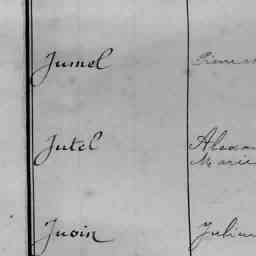 Jumel
Jutel Alexan
Marie
Juoin Julien